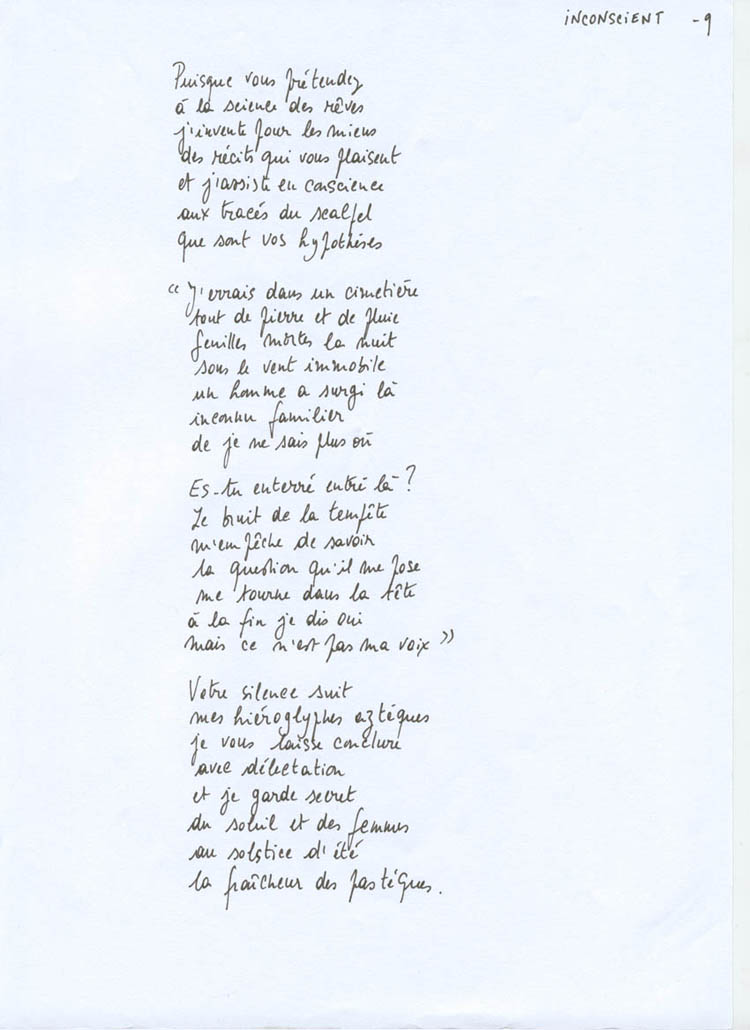 INCONSCIENT - 9
Puisque vous prétendez
à la science des rêves
j'invente pour les miens
des récits qui vous plaisent
et j'assiste en conscience
aux tracés du scalpel
que sont vos hypothèses
" J'errais dans un cimetière
tout de pierre et de pluie
feuilles mortes la nuit
sous le vent immobile
un homme a surgi là
inconnu familier
de je ne sais plus où
Es-tu enterré entré là ?
Le bruit de la tempête
m'empêche de savoir
la question qu'il me pose
me tourne dans la tête
à la fin je dis oui
mais ce n'est pas ma voix "
Votre silence suit
mes hiéroglyphes aztèques
je vous laisse conclure
avec délectation
et je garde secret
du soleil et des femmes
au solstice d'été
la fraîcheur des pastèques.